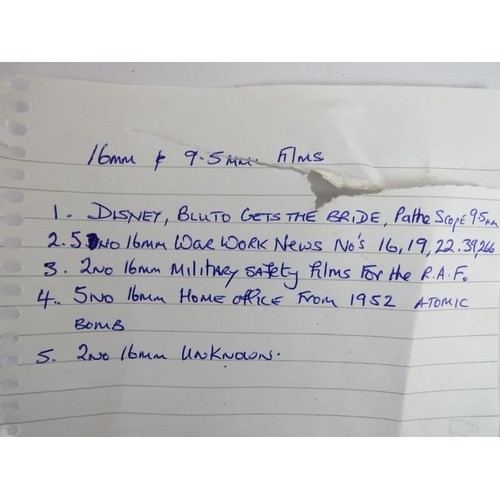 16mm & 9.5mm. Films
1. DISNEY, BLUTO GETS THE BRIDE, Pathe SCOPE 95mm
2. 5 NO 16mm WAR WORK NEWS NO'S 16, 19, 22. 39, 266
3. 2NO 16mm Military SAfety films FOR the R.A.F.
4. 5NO 16mm HOME Office FROM 1952 ATOMIC
BOMB
5. 2NO 16mm UNKNOWN.